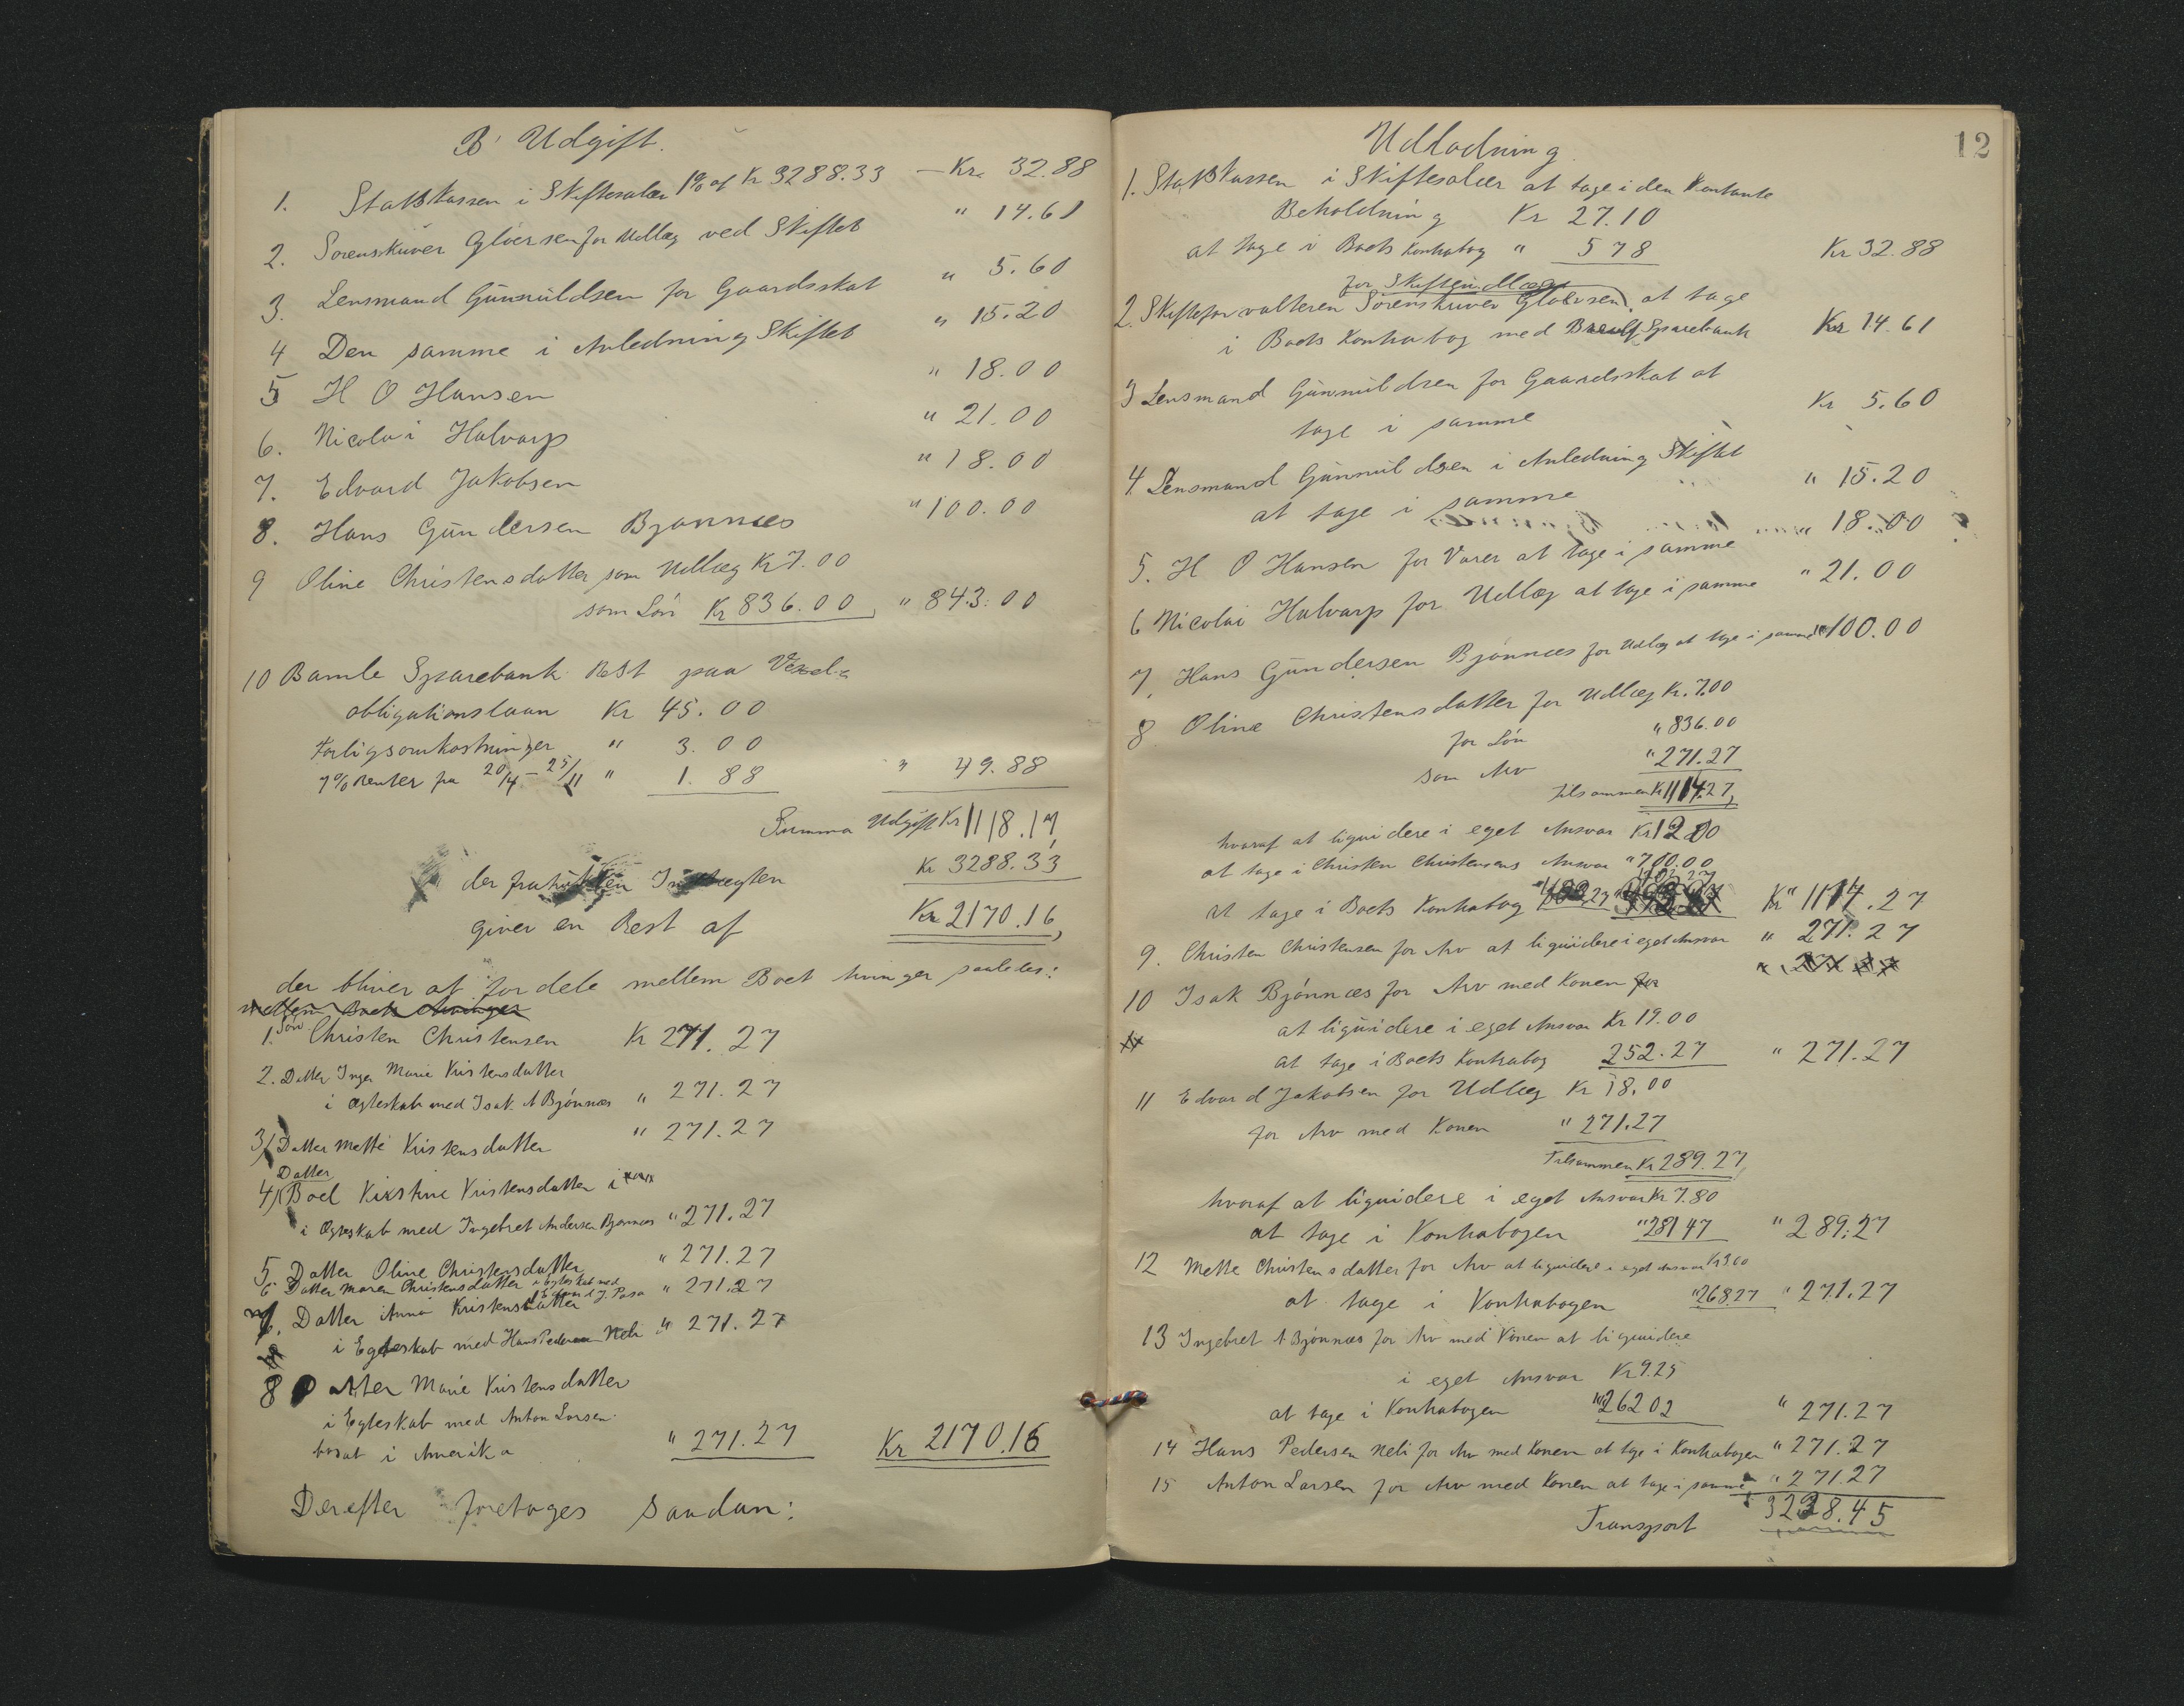 B. Udgift.
1. Statskassen i Skiftesalær 1% af Kr 3288.33 — Kr. 32.88
2. Sorenskriver Gløersen for Udlæg ved Skiftet " 14.61
3. Lensmand Gunnuldsen for Gaardsskat " 5.60
4 Den samme i Anledning Skiftet " 15.20
5 H O Hansen " 18.00
6. Nicolai Halvarp " 21.00
7. Edvard Jakobsen " 18.00
8. Hans Gundersen Bjønnæs " 100.00
9 Oline Christensdatter som Udlæg Kr 7.00
som Løn Kr 836.00 " 843.00
10 Bamle Sparebank Rest paa Vexel-
obligationslaan Kr 45.00
Forligsomkostninger " 3.00
7% Renter fra 20/4 - 25/11 " 1.88 " 49.88
Summa Udgift Kr 1118.17
der fra Indtægten Kr 3288.33
giver en Rest af Kr 2170.16
der bliver at fordele mellem Boet hvinger saaledes:
mellem Boets Arvinger
1. Søn Christen Christensen Kr 271.27
2. Datter Inger Marie Kristensdatter
i Ægteskab med Isak A Bjønnæs " 271.27
3 Datter Mette Kristensdatter " 271.27
Datter
4 Boel Kirstine Kristensdatter i
i Ægteskab med Ingebret Andersen Bjønnæs " 271.27
5 Datter Oline Christensdatter " 271.27
6 Datter Maren Christensdatter i Egteskab med Edvard J. Pasa " 271.27
7. Datter Anna Kristensdatter
i Egteskab med Hans Pedersen Neli " 271.27
8 Datter Marie Kristensdatter
i Egteskab med Anton Larsen
bosat i Amerika " 271.27 Kr 2170.16
Derefter foretages saadan:
12
Udlodning
1. Statskassen i Skiftesalær at tage i den Kontante
Beholdning Kr 27.10
at tage i Boets Kontrabog " 578 Kr 32.88
for Skifteudlæg
2. Skifteforvalteren Sorenskriver Gløersen at tage
i Boets Kontrabog med Sparebank Kr 14.61
3 Lensmand Gunnuldsen for Gaardsskat at
tage i samme Kr 5.60
4. Lensmand Gunnuldsen i Anledning Skiftet
at tage i samme " 15.20
5. H O Hansen for Varer at tage i samme " 18.00
6 Nicolai Halvarp for Udlæg at tage i samme " 21.00
7, Hans Gundersen Bjønnæs for Udlæg at tage i samme " 100.00
8 Oline Christensdatter for Udlæg Kr. 7.00
for Løn " 836.00
som Arv " 271.27
tilsammen Kr 1114.27
hvoraf at liquidere i eget Ansvar Kr 12.00
at tage i Christen Christensens Ansvar " 700.00
at tage i Boets Kontrabog 402.27 Kr " 1114.27
9. Christen Christensen for Arv at liquidere i eget Ansvar " 271.27
10 Isak Bjønnæs for Arv med Konen for
at liquidere i eget Ansvar Kr 19.00
at tage i Boets Kontrabog 252.27 " 271.27
11 Edvard Jakobsen for Udlæg Kr 18.00
for Arv med Konen " 271.27
Tilsammen Kr 289.27
hvoraf at liquidere i eget Ansvar Kr 7.80
at tage i Kontrabogen " 281 47 " 289.27
12 Mette Christensdatter for Arv at liquidere i eget Ansvar Kr 3.00
at tage i Kontrabogen " 268.27 " 271.27
13 Ingebret A Bjønnæs for Arv med Konen at liquidere
i eget Ansvar Kr 9.25
at tage i Kontrabogen " 262 02 " 271.27
14 Hans Pedersen Neli for Arv med Konen at tage i Kontrabogen " 271.27
15 Anton Larsen for Arv med Konen at tage i samme " 271.27
Transport 3238.45